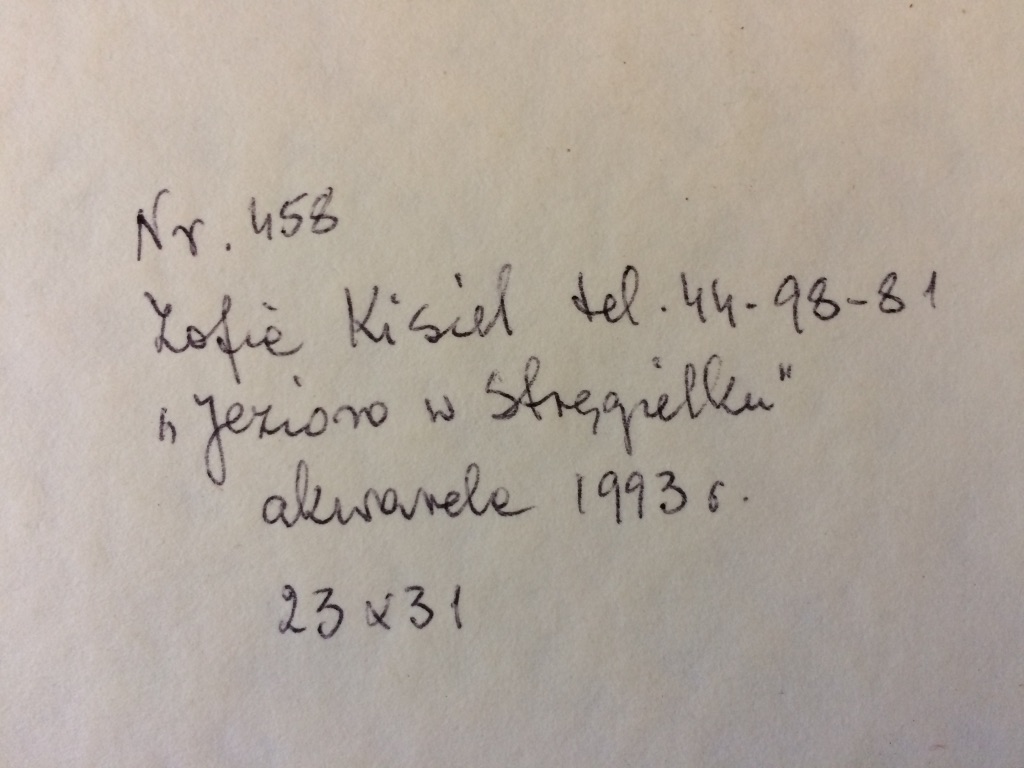 Nr. 458
Zofia Kisiel tel. 44-98-81
„Jezioro w Stręgielku"
akwarela 1993 r.
23 x 31